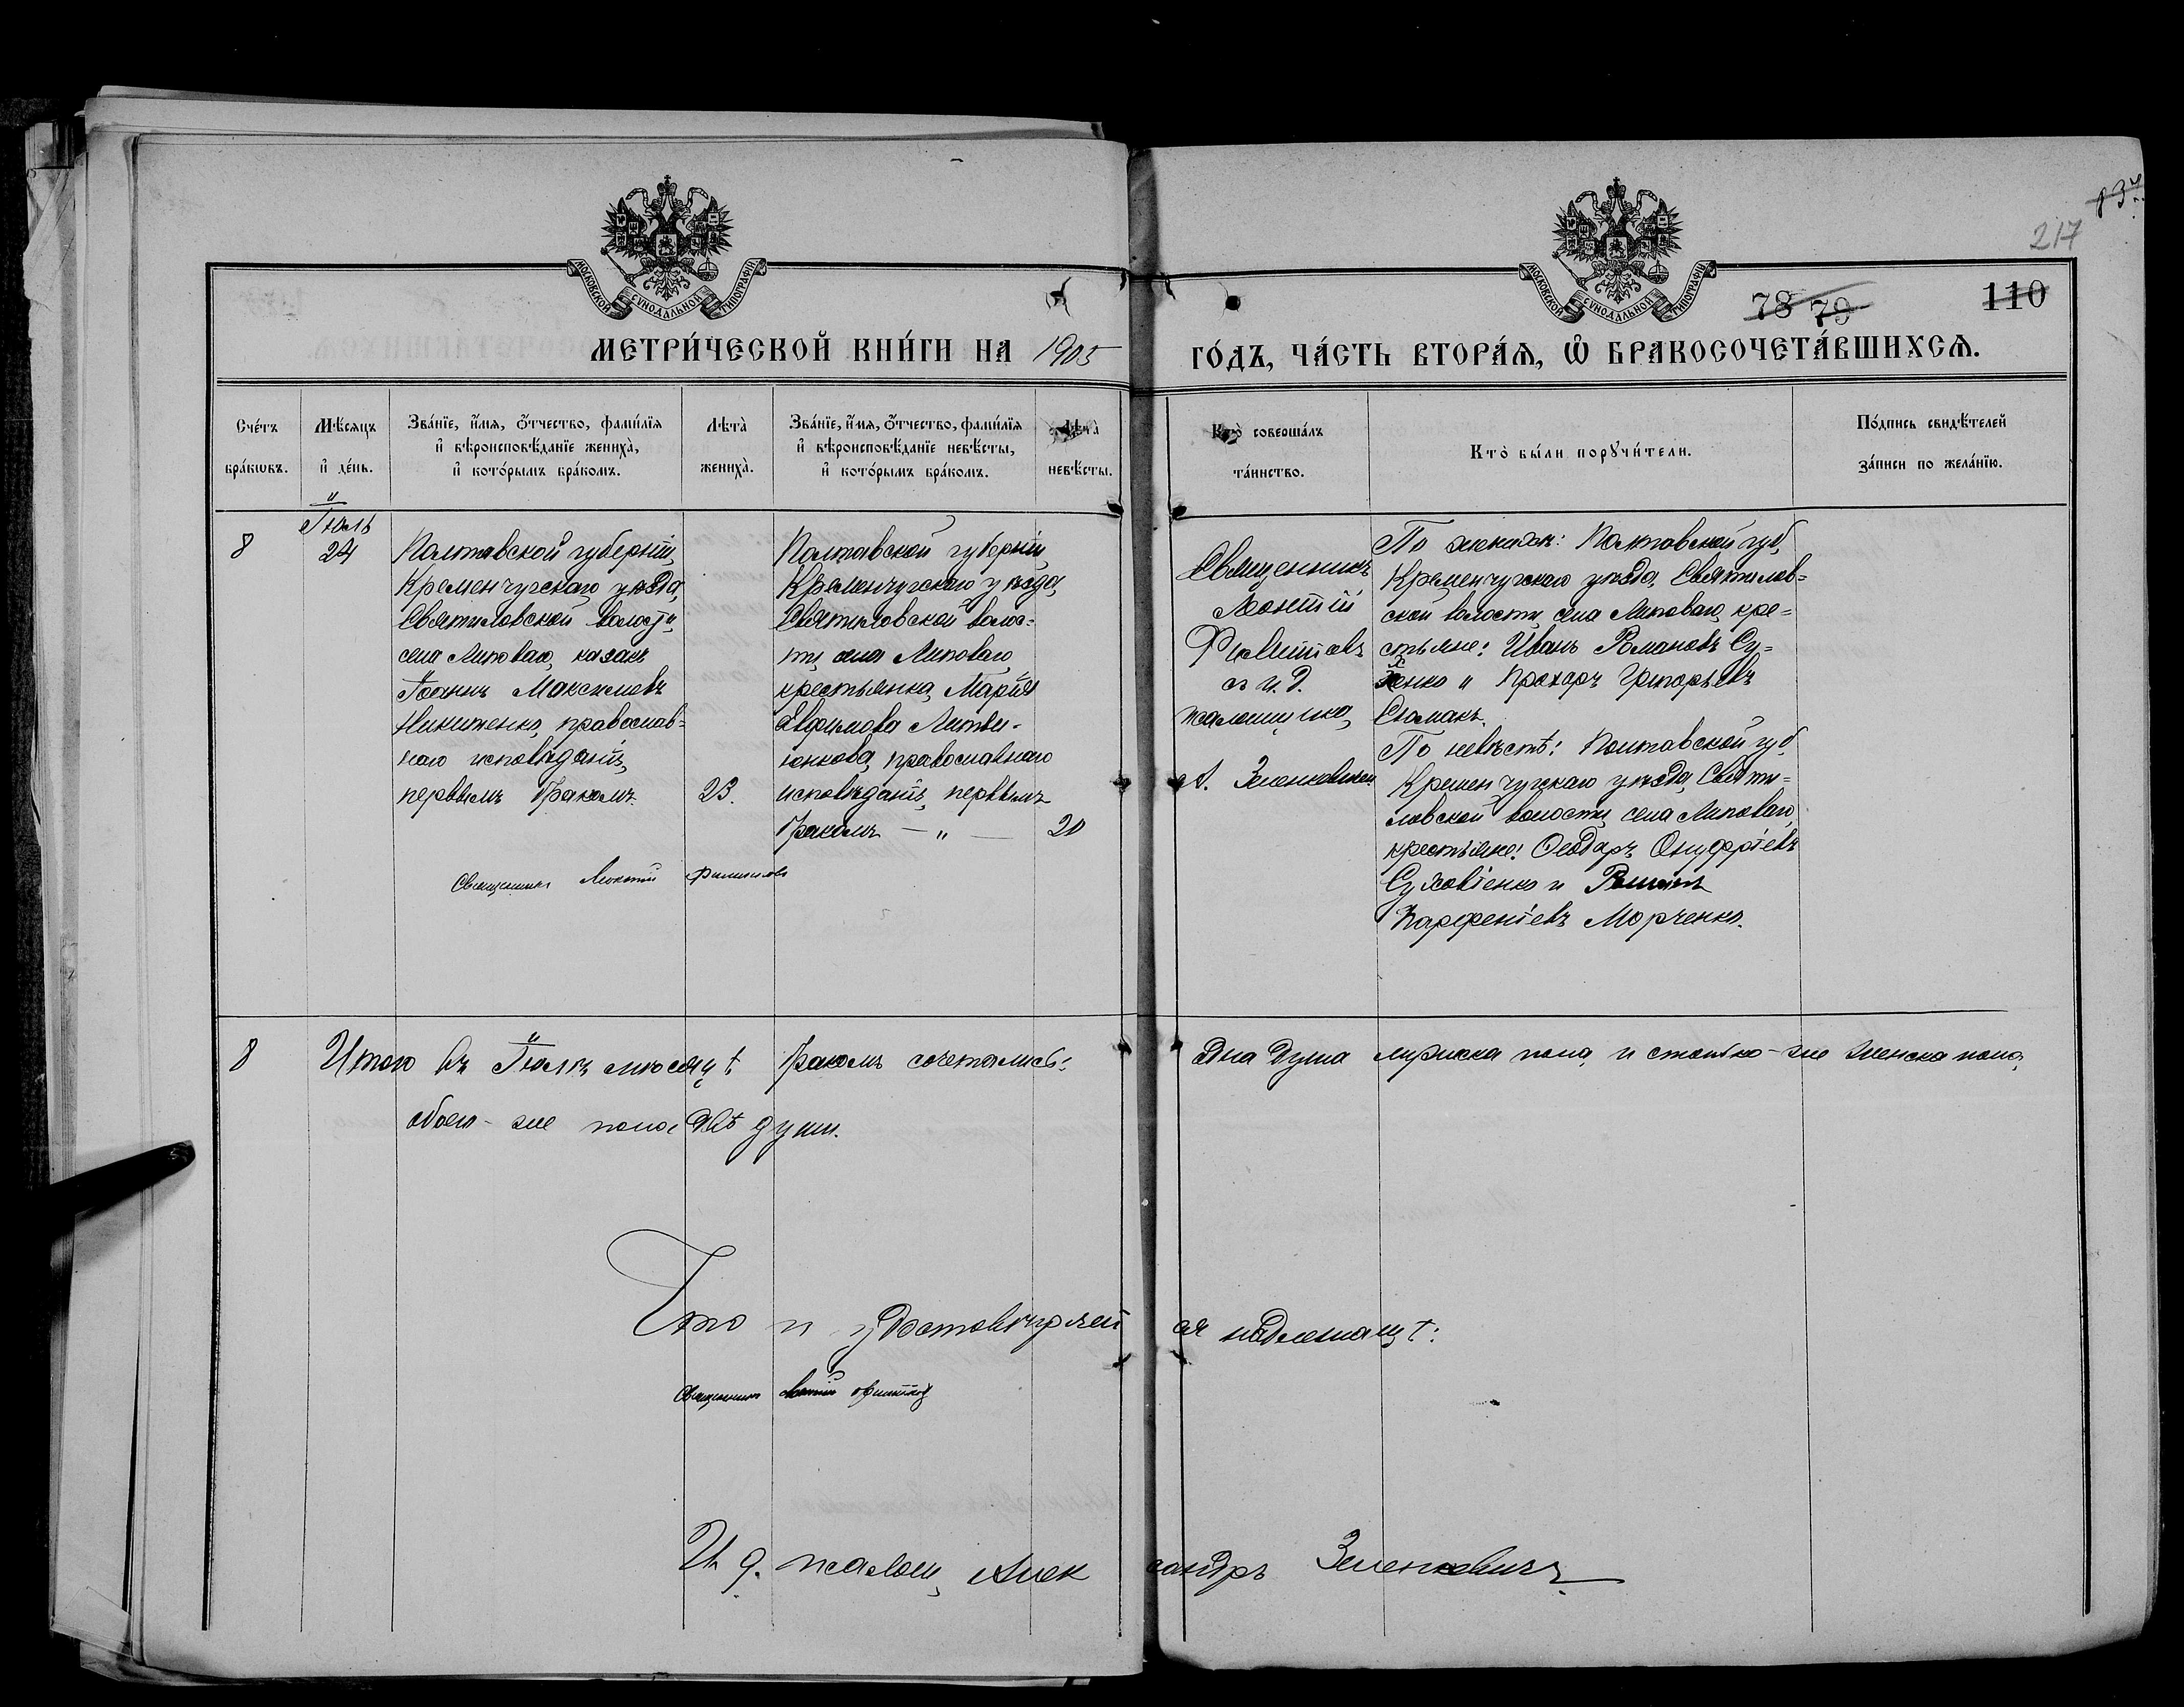 МОСКОВСКОЙ СѴНОДАЛЬНОЙ ТИПОГРАФІИ
МОСКОВСКОЙ СѴНОДАЛЬНОЙ ТИПОГРАФІИ
217
78 79
110
МЕТРИ́ЧЕСКОЙ КНИ́ГИ НА 1905
ГО́ДЪ, ЧА́СТЬ ВТОРА́Ѧ, Ѡ БРАКОСОЧЕТА́ВШИХСѦ.
Сче́тъ
бра́кѡвъ.
Мѣ́сяцъ
и҆ де́нь.
Зва́нїе, и҆́мя, ѻ҆́тчество, фами́лїя
и҆ вѣроисповѣ́данїе жениха̀,
и҆ кото́рымъ бра́комъ.
Лѣта̀
жениха̀.
Зва́нїе, и҆́мя, ѻ҆́тчество, фами́лїя
и҆ вѣроисповѣ́данїе невѣ́сты,
и҆ кото́рымъ бра́комъ.
Лѣта̀
невѣ́сты.
Кто̀ соверша́лъ
та́инство.
Кто̀ бы́ли порꙋчи́тели.
По́дпись свидѣ́телей
за́писи по жела́нїю.
8
Іюль
24
Полтавской губерніи,
Кременчугскаго уѣзда,
Святиловской волости,
села Липоваго, казакъ
Іоаннъ Максимовъ
Никитенко, православ-
наго исповѣданія,
первымъ бракомъ.
23.
Полтавской губерніи,
Кременчугскаго уѣзда,
Святиловской волос-
ти, села Липоваго,
крестьянка, Марія
Евфимова Литви-
ненкова, православнаго
исповѣданія, первымъ
бракомъ — „ —
20
Священникъ Леонтій Филипповъ
Священникъ
Леонтій
Филипповъ
съ и. д.
псаломщика,
А. Зеленкевичемъ.
По женихѣ: Полтавской губ,
Кременчугскаго уѣзда, Святилов-
ской волости, села Липоваго, кре-
стьяне: Иванъ Романовъ Су-
хенко и Прохоръ Григорьевъ
По невѣстѣ: Полтавской губ.
Кременчугскаго уѣзда, Святи-
ловской волости, села Липоваго,
крестьяне: Ѳеодоръ Онуфріевъ
и Романъ
Парфеніевъ Морченко.
8
Итого въ Іюлѣ мѣсяцѣ бракомъ сочетались: одна душа мужска пола, и столько-же женска пола,
обоего-же пола двѣ души.
Что и удостовѣряется надлежащѣ:
Священникъ Леонтій Филипповъ
И. д. псаломщ. Александръ Зеленкевичъ